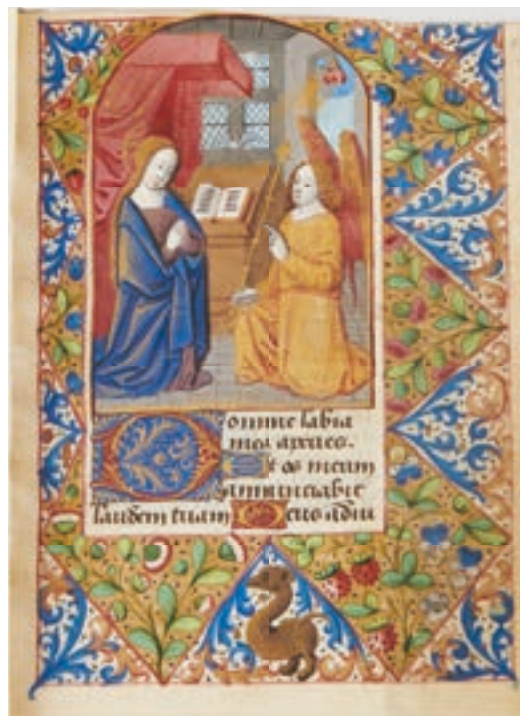 Domine labia
mea aperies.
Et os meum
annunciabit
laudem tuam Deus in adiu